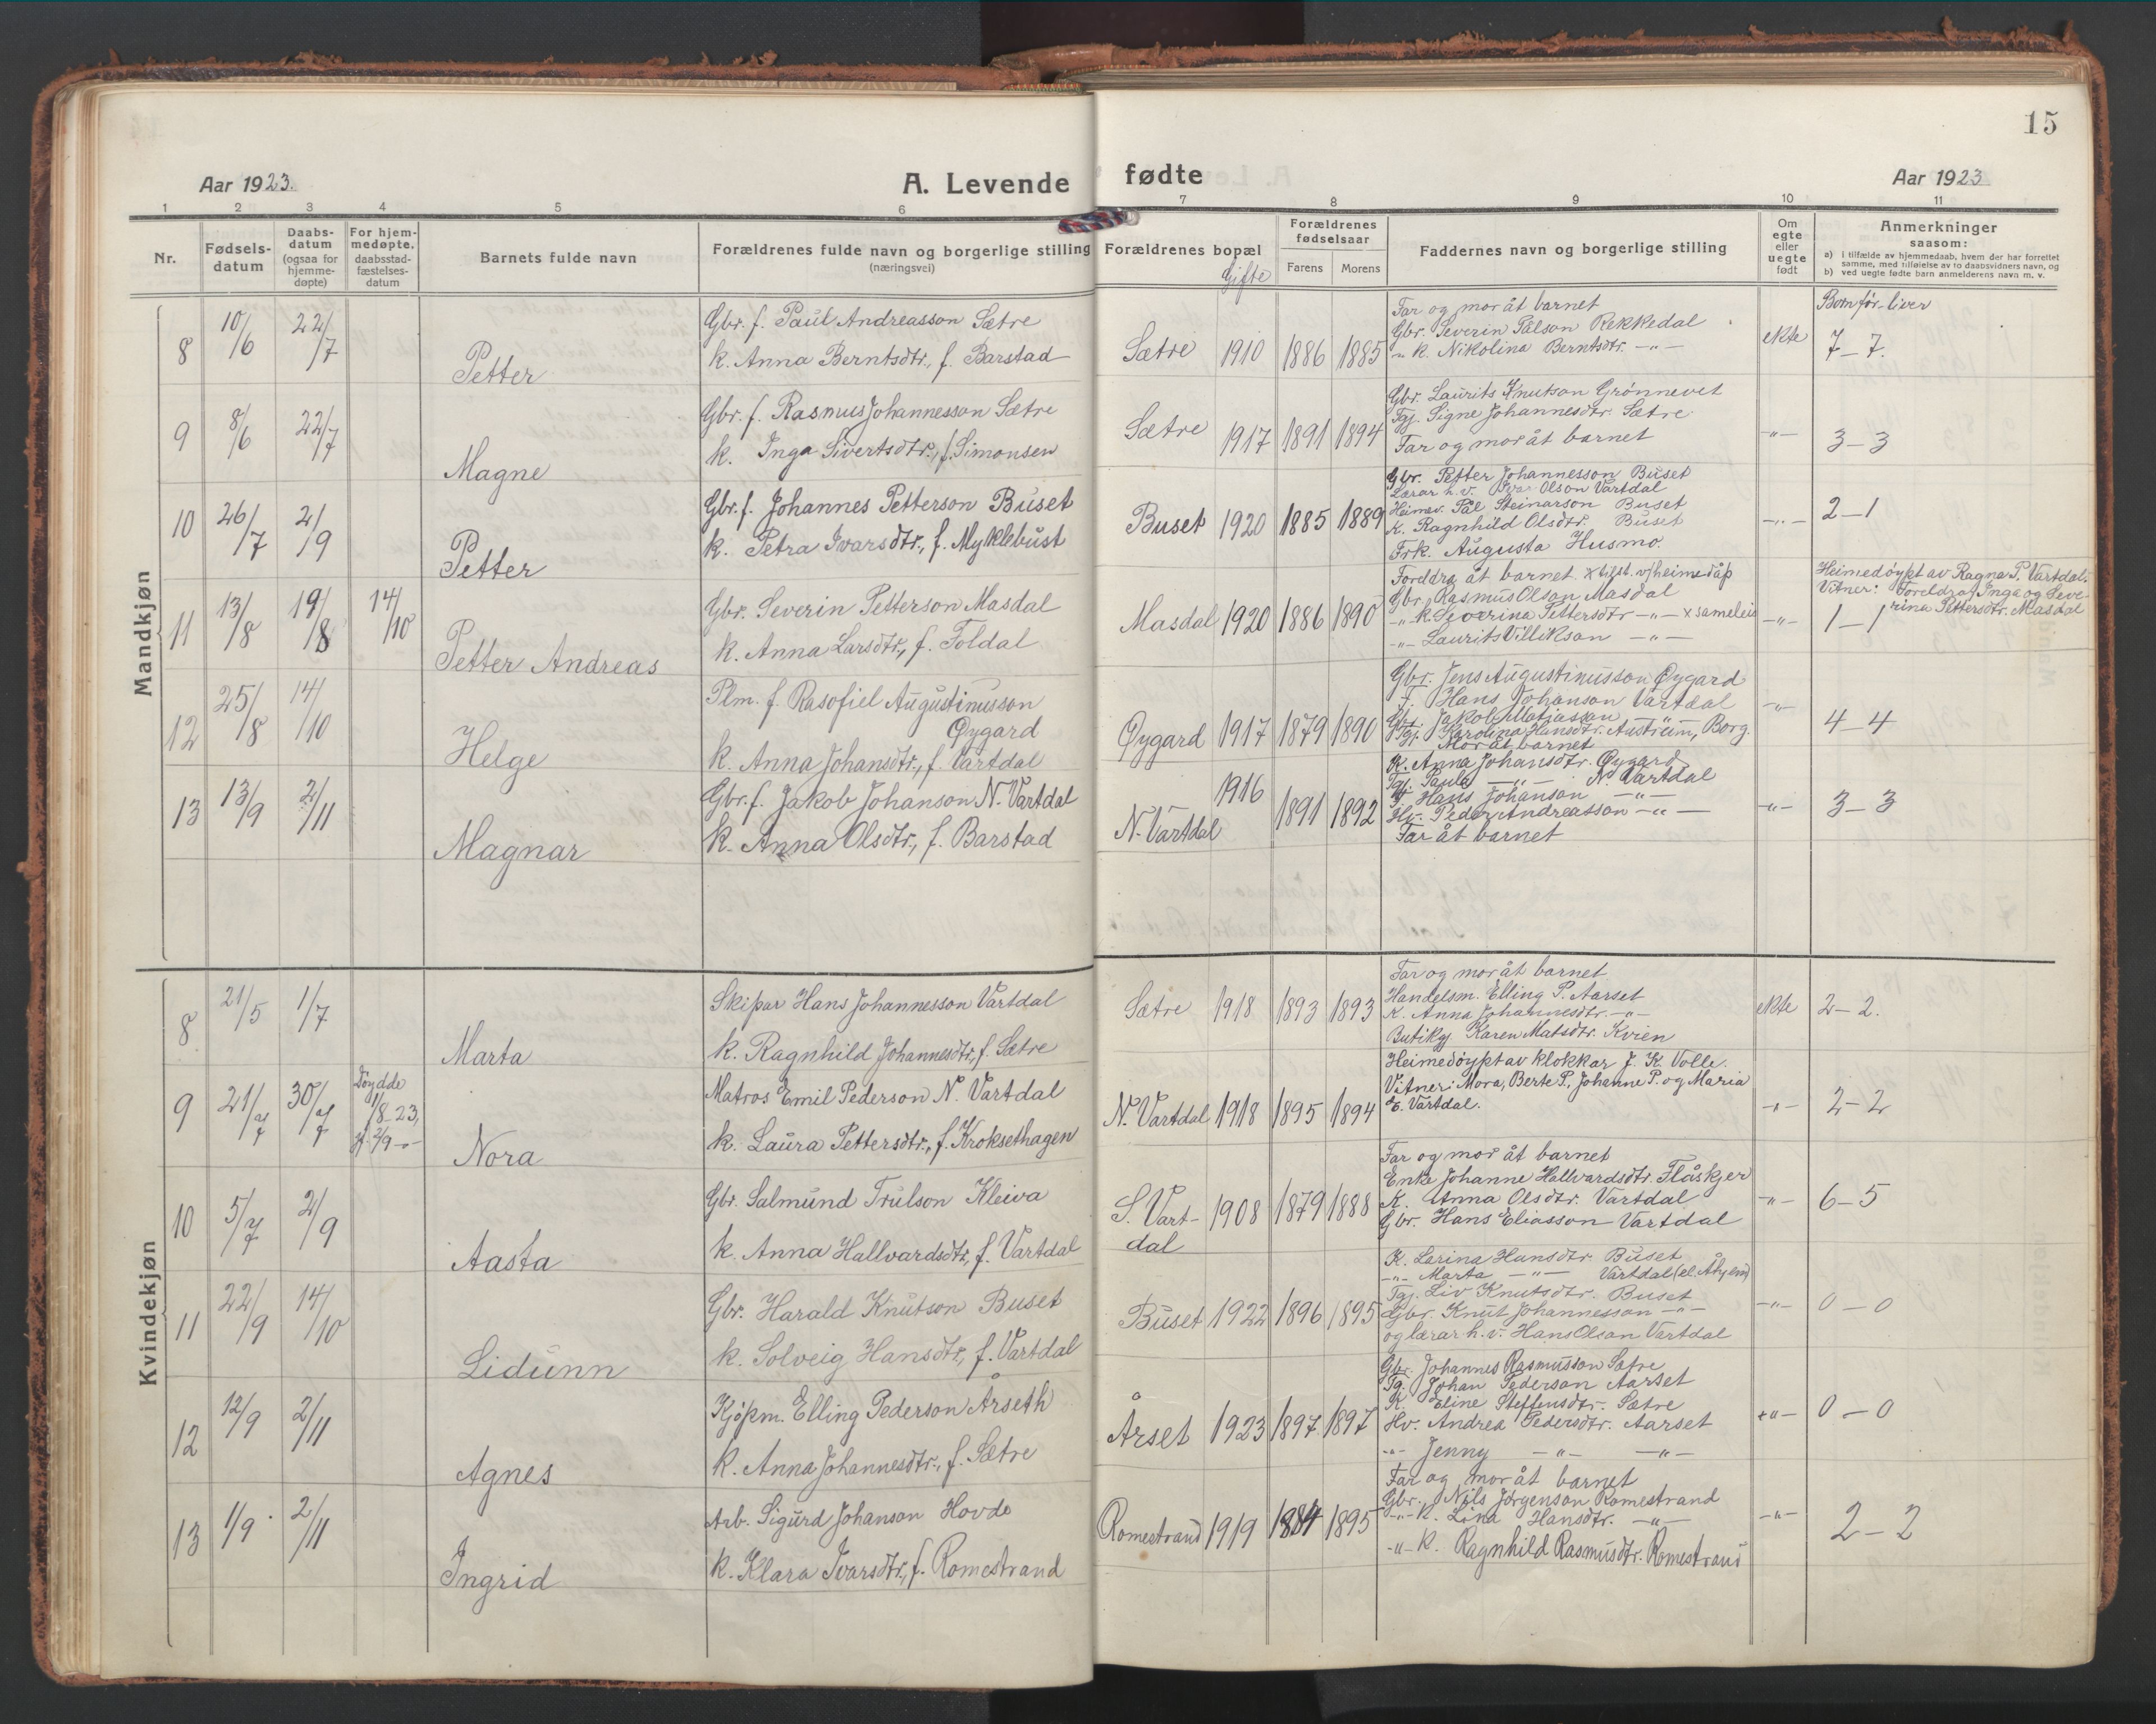 15
Aar 1923.
A. Levende fødte
Aar 1923
1 2 3 4 5 6 7 8 9 10 11
Nr.
Fødsels-
datum
Daabs-
datum
(ogsaa for
hjemme-
døpte)
For hjem-
medøpte,
daabsstad-
fæstelses-
datum
Barnets fulde navn
Forældrenes fulde navn og borgerlige stilling
(næringsvei)
Forældrenes bopæl
Gifte
Forældrenes
fødselsaar
Farens Morens
Faddernes navn og borgerlige stilling
Om
egte
eller
uegte
født
Anmerkninger
saasom:
a) i tilfælde av hjemmedaab, hvem der har forrettet
samme, med tilføielse av to daabsvidners navn, og
b) ved uegte fødte barn anmelderens navn m. v.
Mandkjøn
8 10/6 22/7 Petter
Gbr. f. Paul Andreasson Sætre
k. Anna Berntsdtr., f. Barstad
Sætre 1910 1886 1885
Far og mor åt barnet
Gbr. Severin Pålson Rekkedal
-"- k. Nikolina Berntsdtr. -"-
ekte
Born før - liver
7-7.
9 8/6 22/7 Magne
Gbr. f. Rasmus Johannesson Sætre
k. Inga Sivertsdtr., f. Simonsen
Sætre 1917 1891 1894
Gbr. Laurits Knutson Grønnevet
Tgj. Signe Johannesdtr. Sætre
Far og mor åt barnet
-"- 3-3
10 26/7 2/9 Petter
Gbr. f. Johannes Petterson Buset
k. Petra Ivarsdtr., f. Myklebust
Buset 1920 1885 1889
Gbr. Petter Johannesson Buset
Lærar h. v. Ivar Olson Vartdal
Heimev. Pål Steinarson Buset
K. Ragnhild Olsdtr. Buset
Frk. Augusta Husmo.
-"- 2-1
11 13/8 19/8 14/10 Petter Andreas
Gbr. Severin Petterson Masdal
k. Anna Larsdtr., f. Foldal
Masdal 1920 1886 1890
Foreldra åt barnet. x tilst. v/heimedåp
Gbr. Rasmus Olson Masdal
-"- k. Severina Pettersdtr -"- x sameleis
-"- Laurits Villikson -"-
-"-
Heimedøypt av Ragna P. Vartdal.
Vitner: Foreldra, Inga og Seve-
rina Pettersdtr. Masdal
1-1
12 25/8 14/10 Helge
Plm. f. Rasofiel Augustinusson
Øygard
k. Anna Johansdtr., f. Vartdal
Øygard 1917 1879 1890
Gbr. Jens Augustinusson Øygard
F. Hans Johanson Vartdal
Gbr. Jakob Matiasson
Tgj. Karolina Hansdtr. Austrum, Borg.
Mor åt barnet
-"- 4-4
13 13/9 2/11 Magnar
Gbr. f. Jakob Johanson N. Vartdal
k. Anna Olsdtr., f. Barstad
N. Vartdal 1916 1891 1892
K. Anna Johansdtr. Øygard
Tgj. Paula -"- N. Vartdal
F. Hans Johanson -"-
Hv. Peder Andreasson -"-
Far åt barnet
-"- 3-3
Kvindekjøn
8 21/5 1/7 Marta
Skipar Hans Johannesson Vartdal
k. Ragnhild Johannesdtr., f. Sætre
Sætre 1918 1893 1893
Far og mor åt barnet
Handelsm. Elling P. Aarset
K. Anna Johannesdtr. -"-
Butikgj. Karen Matsdtr. Kvien
ekte 2-2.
9 21/7 30/7 Døydde
1/8 23,
2/9 -"- Nora
Matros Emil Pederson N. Vartdal
k. Laura Pettersdtr., f. Kroksethagen
N. Vartdal 1918 1895 1894
Heimedøypt av klokkar J. K. Volle.
Vitner: Mora, Berte P., Johanne P. og Maria
E. Vartdal.
-"- 2-2
10 5/7 2/9 Aasta
Gbr. Salmund Trulson Kleiva
k. Anna Hallvardsdtr., f. Vartdal
S. Vart-
dal 1908 1879 1888
Far og mor åt barnet
Enke Johanne Hallvardsdtr. Flåskjer
K. Anna Olsdtr. Vartdal
Gbr. Hans Eliasson Vartdal
-"- 6-5
11 22/9 14/10 Lidunn
Gbr. Harald Knutson Buset
k. Solveig Hansdtr., f. Vartdal
Buset 1922 1896 1895
K. Larina Hansdtr. Buset
-"- Marta -"- Vartdal
Tgj. Liv Knutsdtr. Buset
Gbr. Knut Johannesson -"-
og lærar h. v. Hans Olson Vartdal
-"- 0-0
12 12/9 2/11 Agnes
Kjøpm. Elling Pederson Årseth
k. Anna Johannesdtr., f. Sætre
Årset 1923 1897 1897
Gbr. Johannes Rasmusson Sætre
Tg. Johan Pederson Aarset
K. Eline Steffensdtr. Sætre
Hv. Andrea Pedersdtr. Aarset
-"- Jenny -"- -"-
-"- 0-0
13 1/9 2/11 Ingrid
Arb. Sigurd Johanson Hovde
k. Klara Ivarsdtr., f. Romestrand
Romestrand 1919 1884 1895
Far og mor åt barnet
Gbr. Nils Jørgenson Romestrand
-"- k. Lina Hansdtr. -"-
-"- k. Ragnhild Rasmusdtr. Romestrand
-"- 2-2